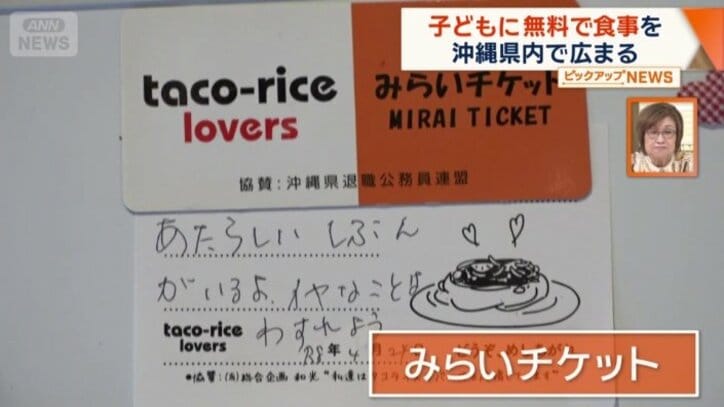 ANN NEWS
子どもに無料で食事を
沖縄県内で広まる
ピックアップNEWS
taco-rice
lovers
みらいチケット
MIRAI TICKET
協賛：沖縄県退職公務員連盟
あたらしい じぶん
がいるよ、イヤなことは
わすれよう
taco-rice
lovers
R8年4月
*協賛：(有)総合企画 和光
みらいチケット